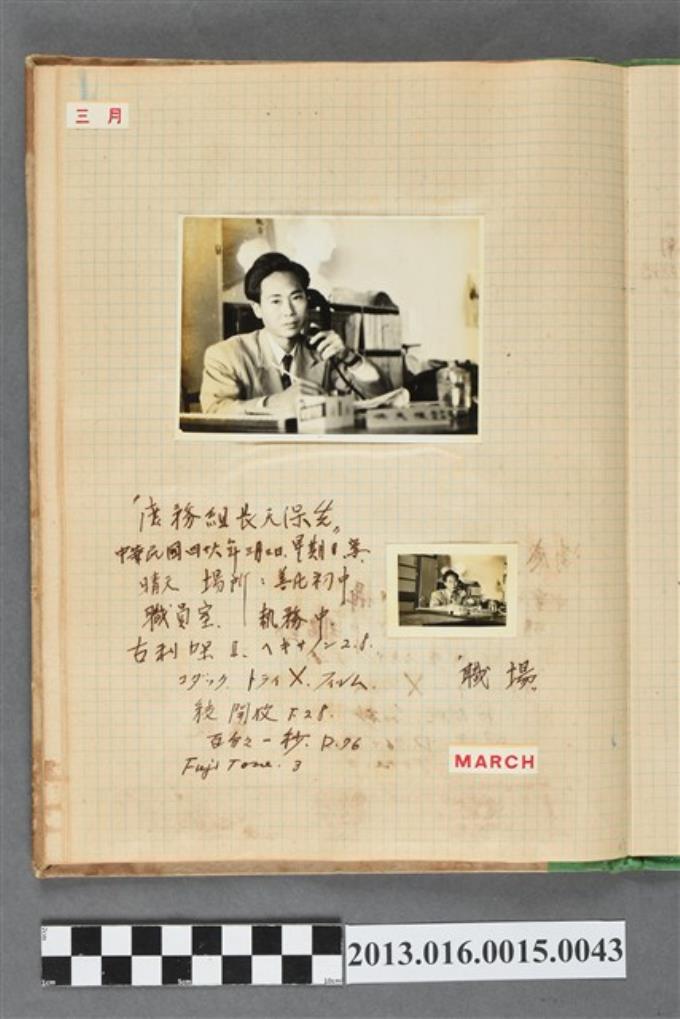 三月
「庶務組長元保先」
中華民國四十六年三月二日.星期
晴天 場所:善化初中
職員室. 執務中.
古利 II. ヘキサノン2.8.
コダック トライX.フィルム.
鏡開放 F.2.8.
百分之一秒. D.76
Fuji Tone. 3
「職場」
MARCH
2013.016.0015.0043
2cm
1cm
5cm
10cm